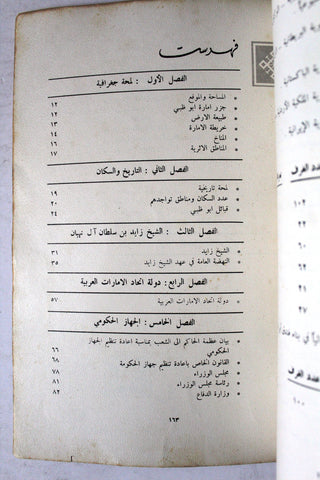 فهرست
الفصل الأول : لمحة جغرافية
• المساحة والموقع ١٢
• جزر امارة ابو ظبي ١٢
• طبيعة الارض ١٣
• خريطة الامارة ١٤
• المناخ ١٦
• المناطق الاثرية ١٧
الفصل الثاني : التاريخ والسكان
• لمحة تاريخية ١٩
• عدد السكان ومناطق تواجدهم ٢٠
• قبائل ابو ظبي ٢٤
الفصل الثالث : الشيخ زايد بن سلطان آل نهيان
• الشيخ زايد ٣١
• النهضة العامة في عهد الشيخ زايد ٣٥
الفصل الرابع : دولة اتحاد الامارات العربية
• دولة اتحاد الامارات العربية ٥٧
الفصل الخامس : الجهاز الحكومي
• بيان عظمة الحاكم الى الشعب بمناسبة اعادة تنظيم الجهاز
الحكومي ٦٦
• القانون الخاص باعادة تنظيم جهاز الحكومة ٦٨
• مجلس الوزراء ٧٨
• رئاسة مجلس الوزراء ٨١
• وزارة الدفاع ٨٢
١٦٣
البريطانية
الباكستانية
عدد الغرف
١٠٢
عدد الغرف
١٠٠